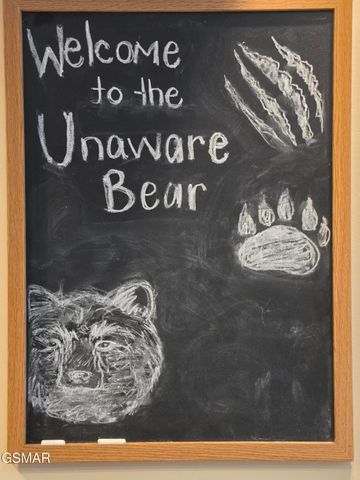 Welcome
to the
Unaware
Bear
GSMAR